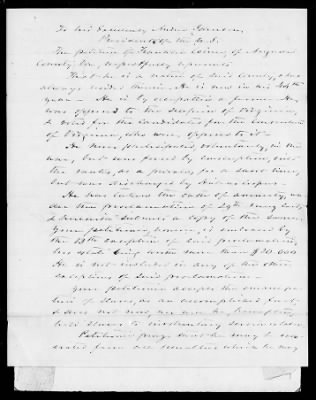 To his Excellency Andrew Johnson,
President of the U.S.
The petition of Franklin Coiner of Augusta
County Va, respectfully represents
That he is a native of said County, &
always resided therein. He is now in his 34th
year. He is by occupation a farmer. He
was opposed to the Secession of Virginia,
& voted for the Candidates for the convention
of Virginia, who were opposed to it.
He never participated, voluntarily, in the
war, but was forced by conscription, into
the ranks, as a private, for a short time,
but was discharged by Habeas Corpus.
He has taken the oath of amnesty, un-
der the proclamation of 29th May 1865,
& herewith submits a copy of the same.
Your petitioner, however, is embraced by
the 13th exception of said proclamation,
his estate being worth more than $20,000
He is not included in any of the other
exceptions of said proclamation.
Your petitioner accepts the emancipa-
tion of slaves, as an accomplished fact,
& does not now, nor will he, hereafter,
hold slaves to involuntary servitude.
Petitioner prays that he may be
from all penalties which he may